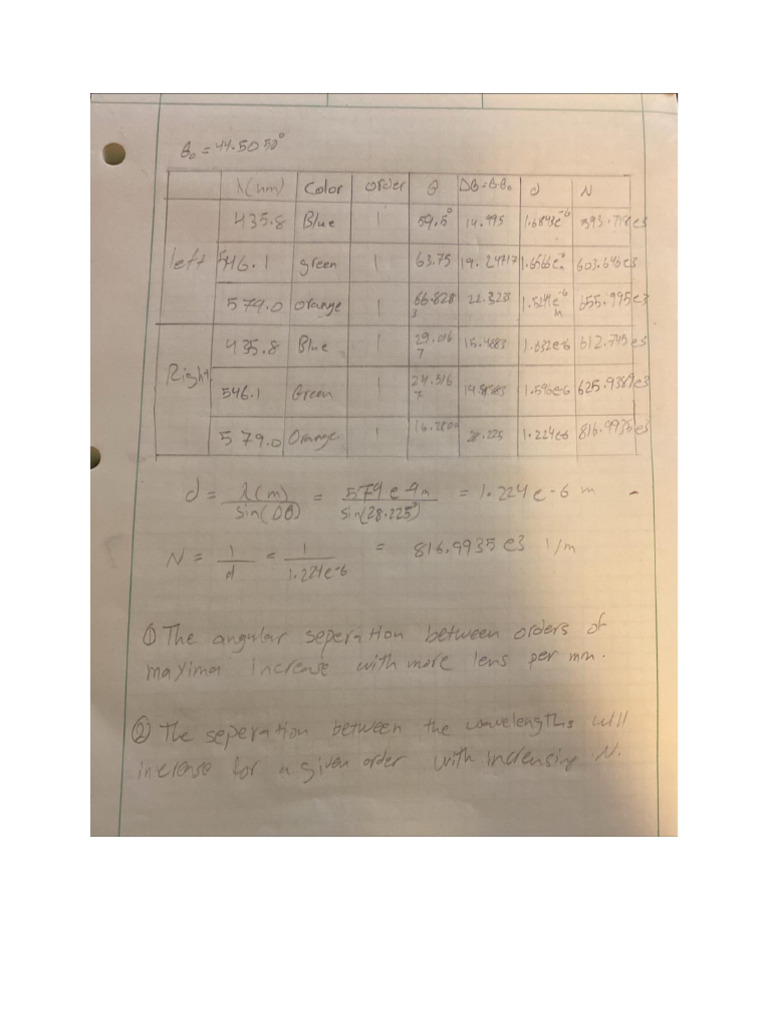 θ₀ = 44.5050°
λ(nm) Color order θ Δθ=θ-θ₀ d N
435.8 Blue 1 59.5° 14.995 1.6843e⁻⁶ 593.718e3
left 546.1 green 1 63.75 603.646e3
579.0 orange 1 66.8283 22.3233 655.995e3
435.8 Blue 1 29.0167 15.4883 1.632e-6 612.745e3
Right 546.1 Green 1 24.5167 1.596e-6
579.0 Orange 1 28.225 1.224e-6 816.9935e3
d = λ(m) / sin(Δθ) = 579e-9m / sin(28.225°) = 1.224e-6 m
N = 1 / d = 1 / 1.224e-6 = 816.9935e3 1/m
① The angular seperation between orders of
mayima increase with more lens per mm.
② The seperation between the wavelengths will
increase for a given order with increasing N.